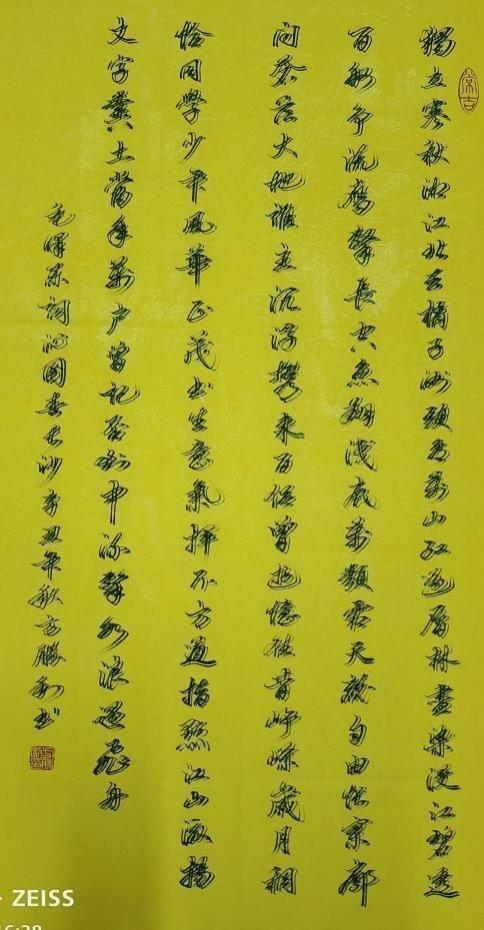 常吉
獨立寒秋湘江北去橘子洲頭看萬山紅遍層林盡染漫江碧透
百舸爭流鷹擊長空魚翔淺底萬類霜天競自由悵寥廓
問蒼茫大地誰主沉浮攜來百侶曾遊憶往昔崢嶸歲月稠
恰同學少年風華正茂書生意氣揮斥方遒指點江山激揚
文字糞土當年萬戶曾記否到中流擊水浪遏飛舟
毛澤東詞沁園春長沙辛丑年秋方勝利書
ZEISS